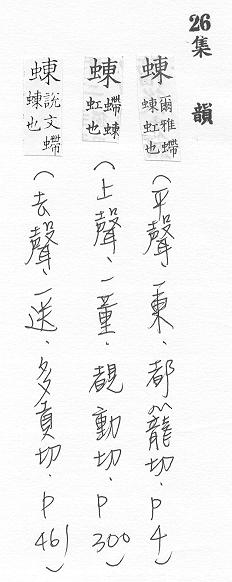 26集韻
蝀爾雅螮蝀虹也(平聲、一東、都籠切、P4)
蝀螮蝀虹也(上聲、一董、覩動切、P300)
蝀說文螮蝀也(去聲、一送、多貢切、P461)